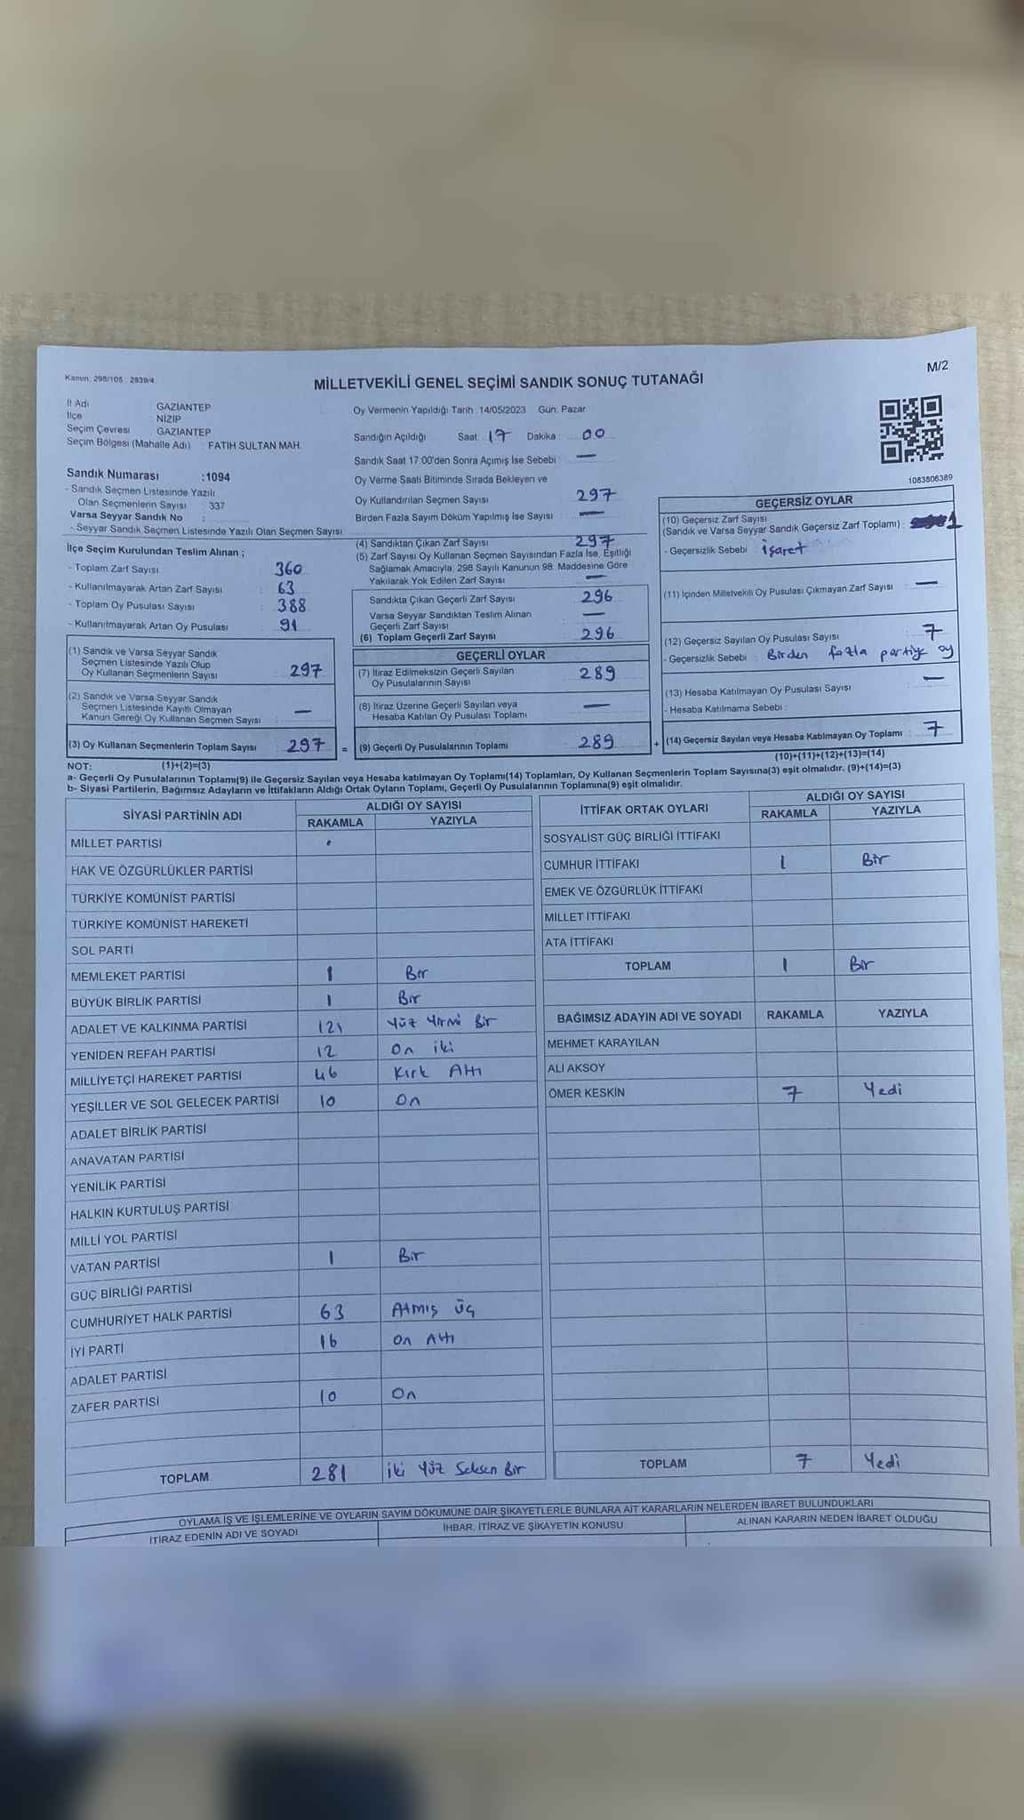 Kanun: 298/105 : 2839/4
M/2
MİLLETVEKİLİ GENEL SEÇİMİ SANDIK SONUÇ TUTANAĞI
İl Adı GAZİANTEP
İlçe NİZİP
Seçim Çevresi GAZİANTEP
Seçim Bölgesi (Mahalle Adı) FATİH SULTAN MAH.
Sandık Numarası :1094
- Sandık Seçmen Listesinde Yazılı
Olan Seçmenlerin Sayısı : 337
Varsa Seyyar Sandık No :
- Seyyar Sandık Seçmen Listesinde Yazılı Olan Seçmen Sayısı
İlçe Seçim Kurulundan Teslim Alınan ;
- Toplam Zarf Sayısı : 360
- Kullanılmayarak Artan Zarf Sayısı : 63
- Toplam Oy Pusulası Sayısı : 388
- Kullanılmayarak Artan Oy Pusulası : 91
(1) Sandık ve Varsa Seyyar Sandık
Seçmen Listesinde Yazılı Olup
Oy Kullanan Seçmenlerin Sayısı 297
(2) Sandık ve Varsa Seyyar Sandık
Seçmen Listesinde Kayıtlı Olmayan
Kanun Gereği Oy Kullanan Seçmen Sayısı —
(3) Oy Kullanan Seçmenlerin Toplam Sayısı 297 =
Oy Vermenin Yapıldığı Tarih :14/05/2023 Gün: Pazar
Sandığın Açıldığı Saat : 17 Dakika : 00
Sandık Saat 17:00'den Sonra Açımış İse Sebebi : —
Oy Verme Saati Bitiminde Sırada Bekleyen ve
Oy Kullandırılan Seçmen Sayısı : 297
Birden Fazla Sayım Döküm Yapılmış İse Sayısı : —
(4) Sandıktan Çıkan Zarf Sayısı 297
(5) Zarf Sayısı Oy Kullanan Seçmen Sayısından Fazla İse, Eşitliği
Sağlamak Amacıyla, 298 Sayılı Kanunun 98. Maddesine Göre
Yakılarak Yok Edilen Zarf Sayısı —
Sandıkta Çıkan Geçerli Zarf Sayısı 296
Varsa Seyyar Sandıktan Teslim Alınan
Geçerli Zarf Sayısı —
(6) Toplam Geçerli Zarf Sayısı 296
GEÇERLİ OYLAR
(7) İtiraz Edilmeksizin Geçerli Sayılan
Oy Pusulalarının Sayısı 289
(8) İtiraz Üzerine Geçerli Sayılan veya
Hesaba Katılan Oy Pusulası Toplamı —
(9) Geçerli Oy Pusulalarının Toplamı 289 +
1083806389
GEÇERSİZ OYLAR
(10) Geçersiz Zarf Sayısı
(Sandık ve Varsa Seyyar Sandık Geçersiz Zarf Toplamı) : 1
- Geçersizlik Sebebi : işaret
(11) İçinden Milletvekili Oy Pusulası Çıkmayan Zarf Sayısı —
(12) Geçersiz Sayılan Oy Pusulası Sayısı 7
- Geçersizlik Sebebi : Birden fazla partiye oy
(13) Hesaba Katılmayan Oy Pusulası Sayısı —
- Hesaba Katılmama Sebebi :
(14) Geçersiz Sayılan veya Hesaba Katılmayan Oy Toplamı 7
NOT: (1)+(2)=(3)
(10)+(11)+(12)+(13)=(14)
a- Geçerli Oy Pusulalarının Toplamı(9) ile Geçersiz Sayılan veya Hesaba katılmayan Oy Toplamı(14) Toplamları, Oy Kullanan Seçmenlerin Toplam Sayısına(3) eşit olmalıdır. (9)+(14)=(3)
b- Siyasi Partilerin, Bağımsız Adayların ve İttifakların Aldığı Ortak Oyların Toplamı, Geçerli Oy Pusulalarının Toplamına(9) eşit olmalıdır.
SİYASİ PARTİNİN ADI ALDIĞI OY SAYISI
RAKAMLA YAZIYLA
MİLLET PARTİSİ
HAK VE ÖZGÜRLÜKLER PARTİSİ
TÜRKİYE KOMÜNİST PARTİSİ
TÜRKİYE KOMÜNİST HAREKETİ
SOL PARTİ
MEMLEKET PARTİSİ 1 Bir
BÜYÜK BİRLİK PARTİSİ 1 Bir
ADALET VE KALKINMA PARTİSİ 121 Yüz Yirmi Bir
YENİDEN REFAH PARTİSİ 12 On iki
MİLLİYETÇİ HAREKET PARTİSİ 46 Kırk Altı
YEŞİLLER VE SOL GELECEK PARTİSİ 10 On
ADALET BİRLİK PARTİSİ
ANAVATAN PARTİSİ
YENİLİK PARTİSİ
HALKIN KURTULUŞ PARTİSİ
MİLLİ YOL PARTİSİ
VATAN PARTİSİ 1 Bir
GÜÇ BİRLİĞİ PARTİSİ
CUMHURİYET HALK PARTİSİ 63 Atmış üç
İYİ PARTİ 16 On Altı
ADALET PARTİSİ
ZAFER PARTİSİ 10 On
TOPLAM 281 iki Yüz Seksen Bir
İTTİFAK ORTAK OYLARI ALDIĞI OY SAYISI
RAKAMLA YAZIYLA
SOSYALİST GÜÇ BİRLİĞİ İTTİFAKI
CUMHUR İTTİFAKI 1 Bir
EMEK VE ÖZGÜRLÜK İTTİFAKI
MİLLET İTTİFAKI
ATA İTTİFAKI
TOPLAM 1 Bir
BAĞIMSIZ ADAYIN ADI VE SOYADI RAKAMLA YAZIYLA
MEHMET KARAYILAN
ALİ AKSOY
ÖMER KESKİN 7 Yedi
TOPLAM 7 Yedi
OYLAMA İŞ VE İŞLEMLERİNE VE OYLARIN SAYIM DÖKÜMÜNE DAİR ŞİKAYETLERLE BUNLARA AİT KARARLARIN NELERDEN İBARET BULUNDUKLARI
İTİRAZ EDENİN ADI VE SOYADI İHBAR, İTİRAZ VE ŞİKAYETİN KONUSU ALINAN KARARIN NEDEN İBARET OLDUĞU